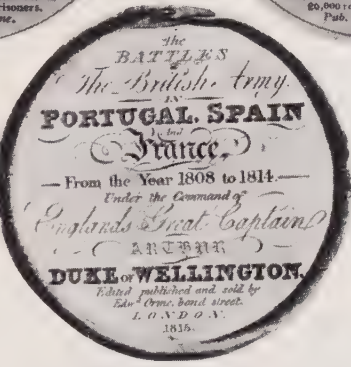 risoners.
20,000
Pub.
the
BATTLES
OF
The British Army
IN
PORTUGAL, SPAIN
And
France,
From the Year 1808 to 1814.
Under the Command of
Englands Great Captain
ARTHUR
DUKE OF WELLINGTON.
Edited published and sold by
Edwd. Orme, bond street.
LONDON.
1815.